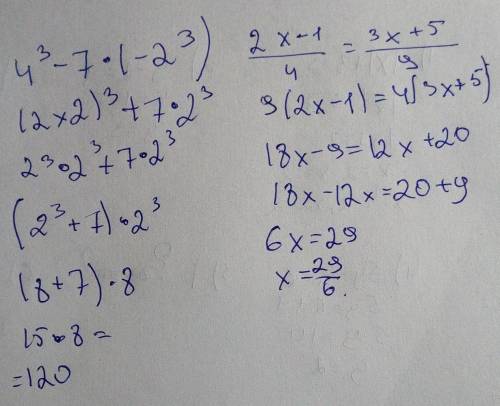 4³-7•(-2³)
(2×2)³+7•2³
2³•2³+7•2³
(2³+7)•2³
(8+7)•8
15•8=
=120
2x-1/4 = 3x+5/9
9(2x-1)=4(3x+5)
18x-9=12x+20
18x-12x=20+9
6x=29
x=29/6.